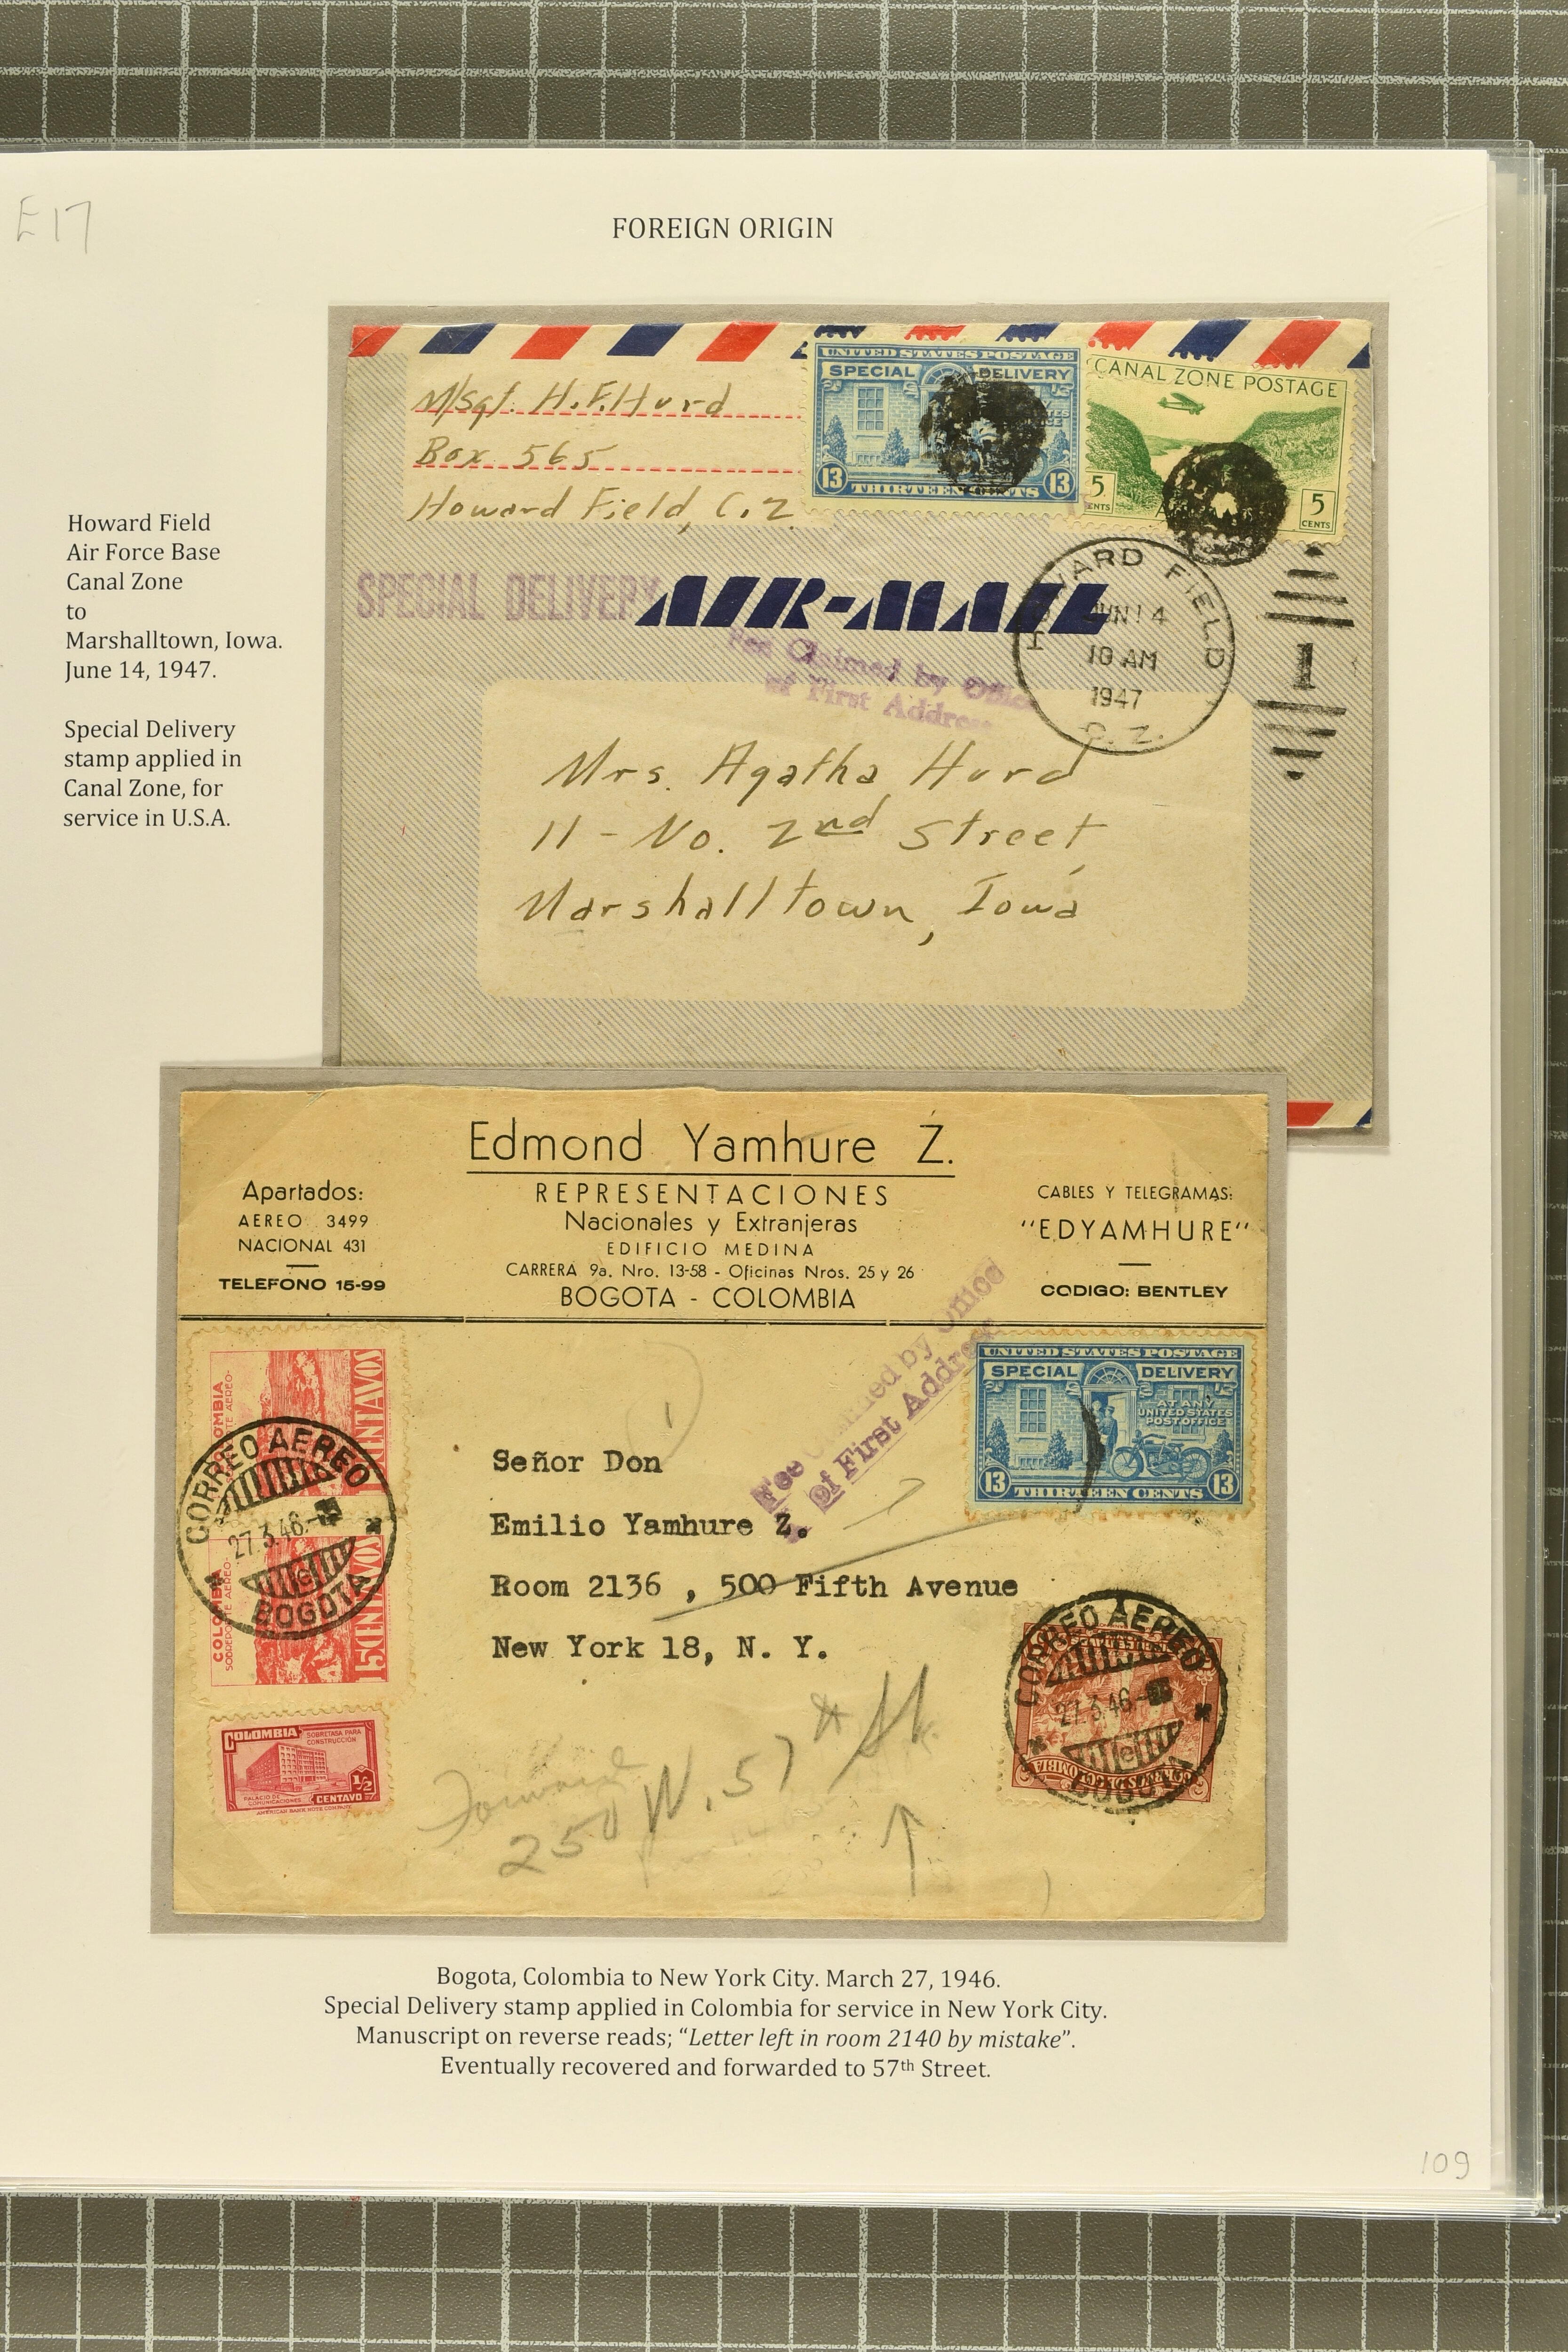 E17
FOREIGN ORIGIN
Howard Field
Air Force Base
Canal Zone
to
Marshalltown, Iowa.
June 14, 1947.
Special Delivery
stamp applied in
Canal Zone, for
service in U.S.A.
M/Sgt. H.F. Hurd
Box 565
Howard Field, C.Z.
UNITED STATES POSTAGE
SPECIAL DELIVERY
13 THIRTEEN CENTS 13
CANAL ZONE POSTAGE
5 CENTS
5 CENTS
SPECIAL DELIVERY
AIR-MAIL
Fee Claimed by Office
of First Address
HOWARD FIELD
JUN 14
10 AM
1947
C. Z.
1
Mrs. Agatha Hurd
11 - No. 2nd Street,
Marshalltown, Iowa
Edmond Yamhure Z.
REPRESENTACIONES
Nacionales y Extranjeras
EDIFICIO MEDINA
CARRERA 9a. Nro. 13-58 - Oficinas Nros. 25 y 26
BOGOTA - COLOMBIA
Apartados:
AEREO 3499
NACIONAL 431
TELEFONO 15-99
CABLES Y TELEGRAMAS:
"EDYAMHURE"
CODIGO: BENTLEY
Fee Claimed by Office
of First Address
UNITED STATES POSTAGE
SPECIAL DELIVERY
AT ANY
UNITED STATES
POST OFFICE
13 THIRTEEN CENTS 13
COLOMBIA
SOBREPORTE AEREO
15 CENTAVOS
CORREO AEREO
27.3.46
BOGOTA
COLOMBIA
SOBRETASA PARA
CONSTRUCCIÓN
PALACIO DE
COMUNICACIONES
1/2
CENTAVO
AMERICAN BANK NOTE COMPANY
Señor Don
Emilio Yamhure Z.
Room 2136 , 500 Fifth Avenue
New York 18, N. Y.
CORREO AEREO
27.3.46
BOGOTA
CORREOS DE COLOMBIA
Forward
250 W. 57th St.
Bogota, Colombia to New York City. March 27, 1946.
Special Delivery stamp applied in Colombia for service in New York City.
Manuscript on reverse reads; “Letter left in room 2140 by mistake”.
Eventually recovered and forwarded to 57th Street.
109